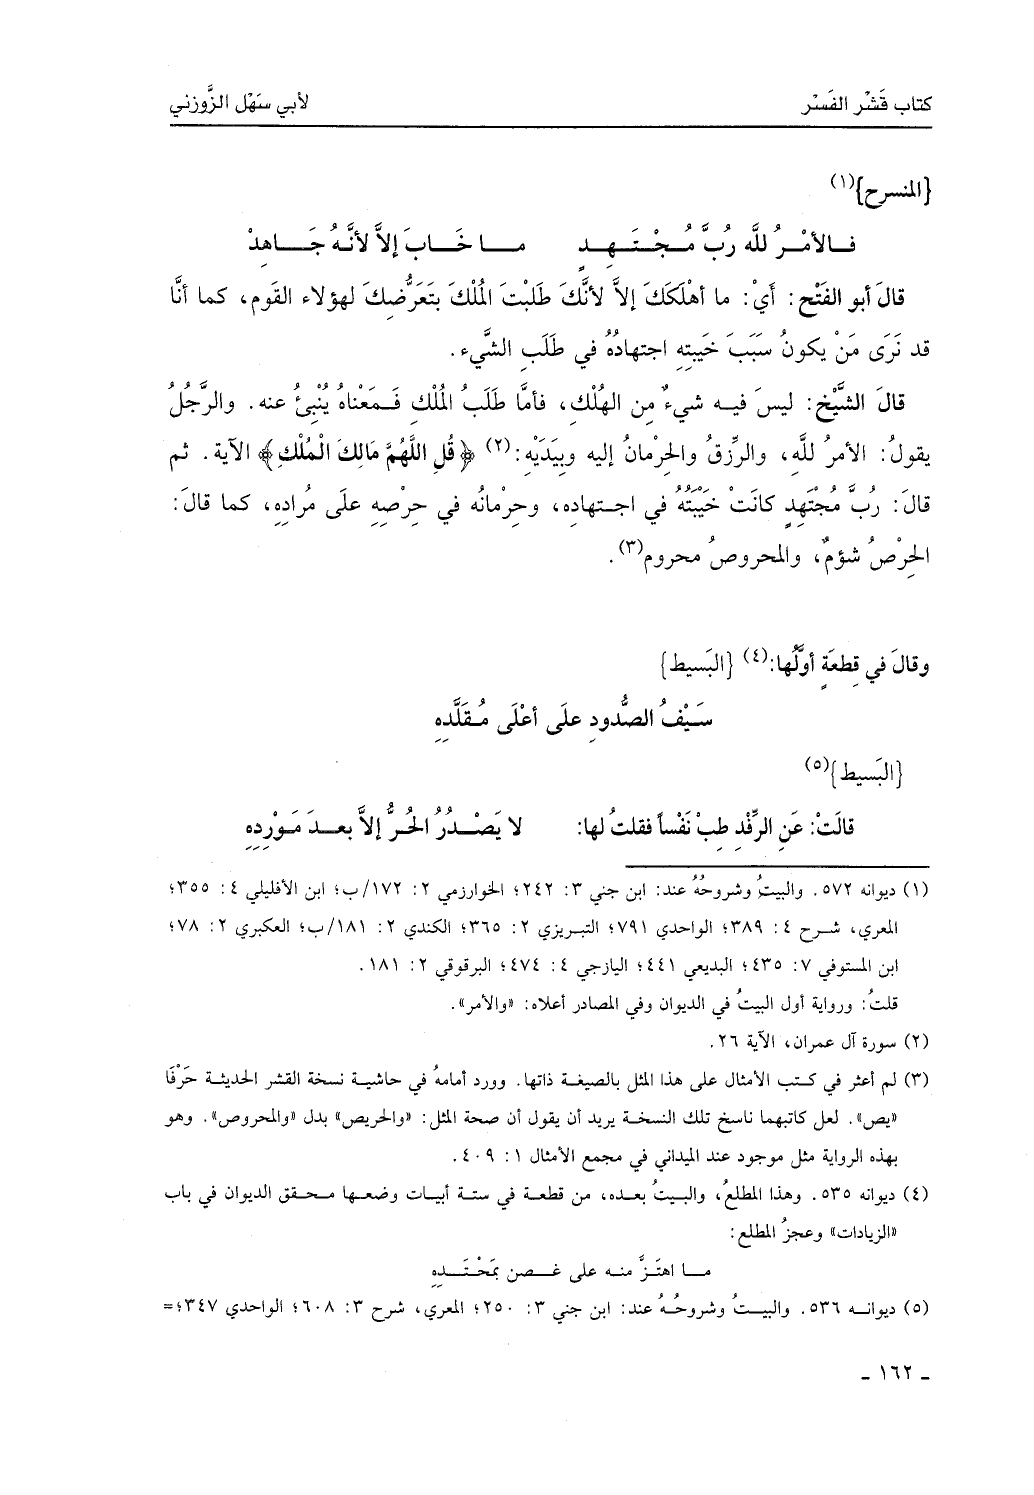 كتاب قَشْر الفَسْر لأبي سَهْل الزَّوْزني
{المنسرح}(١)
فالأمْرُ للّه رُبَّ مُجْتَهِدٍ ما خَابَ إلاَّ لأنَّهُ جَاهِدْ
قالَ أبو الفَتْح: أَيْ: ما أهْلَكَكَ إلاَّ لأنَّكَ طَلَبْتَ المُلْكَ بتَعَرُّضِكَ لهؤلاء القَوم، كما أنَّا
قد نَرَى مَنْ يكونُ سَبَبَ خَيبتِهِ اجتهادُهُ في طَلَبِ الشَّيء.
قالَ الشَّيْخ: ليسَ فيه شيءٌ مِن الهُلْك، فأمَّا طَلَبُ المُلْكِ فَمَعْناهُ يُنْبئُ عنه. والرَّجُلُ
يقولُ: الأمرُ للَّه، والرِّزقُ والحِرْمانُ إليه وبِيَدَيْه:(٢) ﴿قُلِ اللَّهُمَّ مَالِكَ الْمُلْكِ﴾ الآية. ثم
قالَ: رُبَّ مُجْتَهِدٍ كانَتْ خَيْبَتُهُ في اجتهادِه، وحِرْمانُه في حِرْصِهِ علَى مُرادِهِ، كما قالَ:
الحِرْصُ شؤمٌ، والمحروصُ محروم(٣).
وقالَ في قِطعَةٍ أوَّلُها:(٤) {البَسيط}
سَيْفُ الصُّدودِ علَى أعْلَى مُقلَّدِهِ
{البَسيط}(٥)
قالَتْ: عَنِ الرِّفْدِ طِبْ نَفْساً فقلتُ لها: لا يَصْدُرُ الحُرُّ إلاَّ بعدَ مَوْرِدِهِ
(١) ديوانه ٥٧٢. والبيتُ وشروحُهُ عند: ابن جني ٣: ٢٤٢؛ الخوارزمي ٢: ١٧٢/ب؛ ابن الأفليلي ٤: ٣٥٥؛
المعري، شرح ٤: ٣٨٩؛ الواحدي ٧٩١؛ التبريزي ٢: ٣٦٥؛ الكندي ٢: ١٨١/ب؛ العكبري ٢: ٧٨؛
ابن المستوفي ٧: ٤٣٥؛ البديعي ٤٤١؛ اليازجي ٤: ٤٧٤؛ البرقوقي ٢: ١٨١.
قلتُ: ورواية أول البيتُ في الديوان وفي المصادر أعلاه: «والأمر».
(٢) سورة آل عمران، الآية ٢٦.
(٣) لم أعثر في كتب الأمثال على هذا المثل بالصيغة ذاتها. وورد أمامهُ في حاشية نسخة القشر الحديثة حَرْفَا
«يص». لعل كاتبهما ناسخ تلك النسخة يريد أن يقول أن صحة المثل: «والحريص» بدل «والمحروص». وهو
بهذه الرواية مثل موجود عند الميداني في مجمع الأمثال ١: ٤٠٩.
(٤) ديوانه ٥٣٥. وهذا المطلعُ، والبيتُ بعده، من قطعة في ستة أبيات وضعها محقق الديوان في باب
«الزيادات» وعجزُ المطلع:
ما اهتَزَّ منه على غصن بمَحْتَدِهِ
(٥) ديوانه ٥٣٦. والبيتُ وشروحُهُ عند: ابن جني ٣: ٢٥٠؛ المعري، شرح ٣: ٦٠٨؛ الواحدي ٣٤٧؛=
- ١٦٢ -